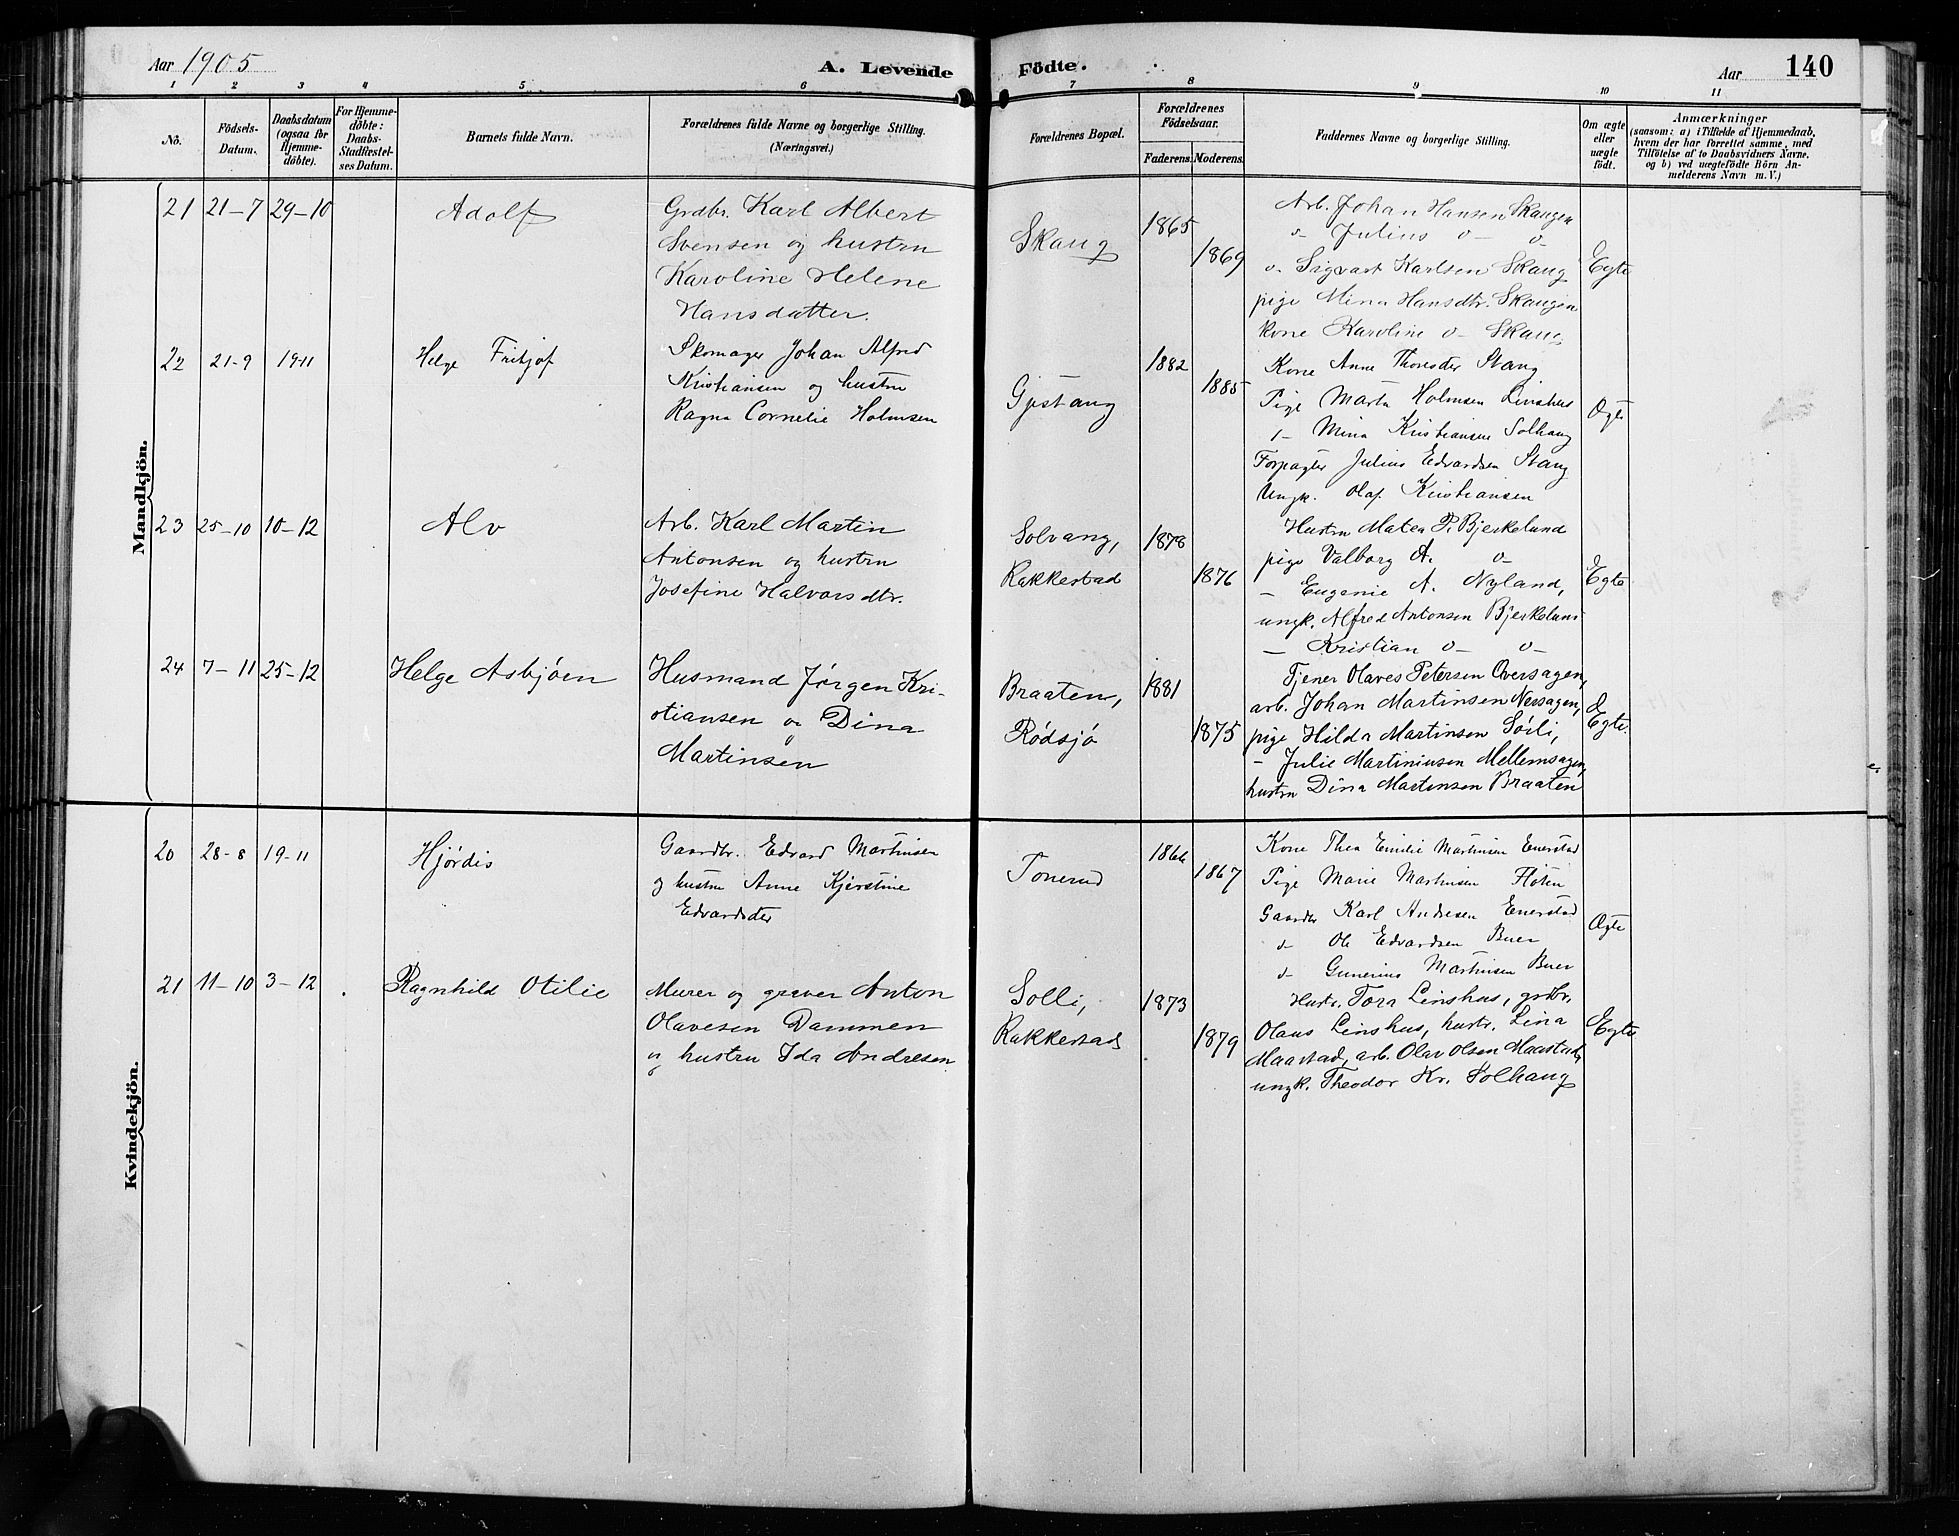 Aar 1905
A. Levende Födte.
Aar
140
1 2 3 4 5 6 7 8 9 10 11
No.
Födsels-Datum.
Daabsdatum (ogsaa for Hjemmedöbte).
For Hjemmedöbte: Daabs-Stadfæstelses Datum.
Barnets fulde Navn.
Forældrenes fulde Navne og borgerlige Stilling.
(Næringsvei.)
Forældrenes Bopæl.
Forældrenes Födselsaar.
Faderens. Moderens.
Faddernes Navne og borgerlige Stilling.
Om ægte eller uægte födt.
Anmærkninger
(saasom: a) i Tilfælde af Hjemmedaab,
hvem der har forrettet samme, med
Tilföielse af to Daabsvidners Navne,
og b) ved uægtefödte Börn An-
melderens Navn m. V.)
Mandkjön.
21 21-7 29-10 Adolf
Grdbr. Karl Albert
Svensen og hustru
Karoline Helene
Hansdatter.
Skaug
1865
1869
Arb. Johan Hansen Skaugen
o- Julius o- o-
o- Sigvart Karlsen Skaug
pige Mina Hansdtr. Skaugen
kone Karoline o- Skaug
Egte
22 21-9 19-11 Helge Fritjof
Skomager Johan Alfred
Kristiansen og hustru
Ragna Cornelie Holmsen
Gjstang
1882
1885
Kone Anne Thoresdtr Stang
Pige Marta Holmsen Linshus
1- Mina Kristiansen Solhaug
Forpagter Julius Edvardsen Stang
Ungk. Olaf Kristiansen
Ægte
23 25-10 10-12 Alv
Arb. Karl Martin
Antonsen og hustru
Josefine Halvorsdtr.
Solvang,
Rakkestad
1878
1876
Hustru Matea P. Bjerkelund
pige Valborg A. o-
- Eugenie A. Nyland,
ungk. Alfred Antonsen Bjerkelund
- Kristian o- o-
Egte
24 7-11 25-12 Helge Asbjøen
Husmand Jørgen Kri-
stiansen og Dina
Martinsen
Braaten,
Rødsjø
1881
1875
Tjener Olaves Petersen Oversagen,
arb. Johan Martinsen Nersagen,
pige Hilda Martinsen Søili,
- Julie Martiniusen Mellemsagen,
hustru Dina Martinsen Braaten
Egte.
Kvindekjön.
20 28-8 19-11 Hjørdis
Gaardbr. Edvard Martinsen
og hustru Anne Kjerstine
Edvardsdtr
Tonerud
1866
1867
Kone Thea Emilie Martinsen Enerstad
Pige Marie Martinsen Fløten
Gaardbr Karl Andresen Enerstad
d- Ole Edvardsen Buer
d- Gunerius Martinsen Buer
Ægte
21 11-10 3-12 Ragnhild Otilie
Murer og graver Anton
Olavesen Dammen
og hustru Ida Andresen
Solli,
Rakkestad
1873
1879
Hustr. Tora Linshus, grdbr.
Olaus Linshus, hustr. Lina
Maarstad, arb. Olav Olsen Maastad,
ungk. Theodor Kr. Solhaug
Egte